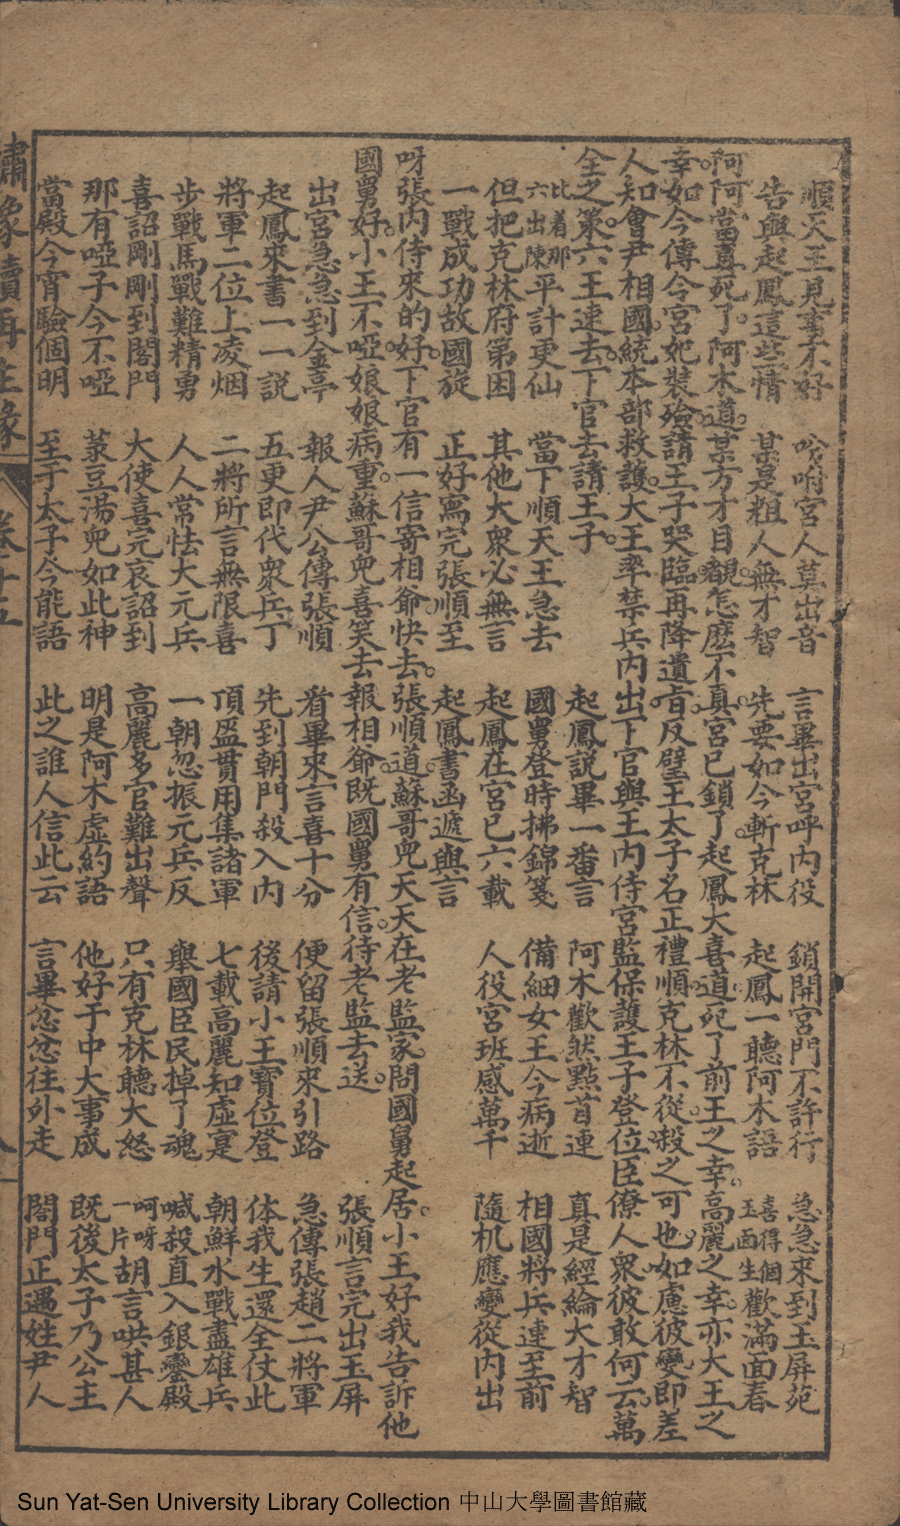 順天王見事不好 吩咐宮人莫出音 言畢出宮呼內役 鎖開宮門不許行 急急來到玉屏苑
告與起鳳這些情 某是粗人無才智 先要如今斬克林 起鳳一聽阿木語 喜得個玉面生歡滿面春
阿阿當真死了阿木道某方才目覩怎麼不真宮已鎖了起鳳大喜道死了前王之幸高麗之幸亦大王之
幸如今傳令宮妃裝殮請王子哭臨再降遺旨反璧王太子名正禮順克林不從殺之可也如慮彼變即差
人知會尹相國統本部救護大王率禁兵內出下官與王內侍宮監保護王子登位臣僚人衆彼敢何云萬
全之策六王速去下官去請王子 起鳳說畢一番言 阿木歡然點首連 真是經綸大才智
比着那六出陳平計更仙 當下順天王急去 國舅登時拂錦箋 備細女王今病逝 相國將兵連至前
但把克林府第困 其他大衆必無言 起鳳在宮已六載 人役宮班感萬千 隨机應變從內出
一戰成功故國旋 正好寫完張順至 起鳳書函遞與言
呀張內侍來的好下官有一信寄相爺快去張順道蘇哥兜天天在老監家問國舅起居小王好我告訴他
國舅好小王不啞娘娘病重蘇哥兜喜笑去報相爺既國舅有信待老監去送 張順言完出玉屏
出宮急急到金亭 報人尹公傳張順 看畢來言喜十分 便留張順來引路 急傳張趙二將軍
起鳳來書一一説 五更即代衆兵丁 先到朝門殺入內 後請小王寶位登 体我生還全仗此
將軍二位上凌烟 二將所言無限喜 頂盔貫甲集諸軍 七載高麗知虛寔 朝鮮水戰盡雄兵
步戰馬戰難精勇 人人常怯大元兵 一朝忽振元兵反 舉國臣民掉了魂 喊殺直入銀鑾殿
喜詔剛剛到閣門 大使喜完哀詔到 高麗多官難出聲 只有克林聽大怒 呵呀一片胡言哄甚人
那有啞子今不啞 菉豆湯兜如此神 明是阿木虛約語 他好于中大事成 既後太子乃公主
當殿今宵驗個明 至于太子今能語 此之誰人信此云 言畢忿忿往外走 閣門正遇姓尹人
繡像續再生緣 卷十五
Sun Yat-Sen University Library Collection 中山大學圖書館藏